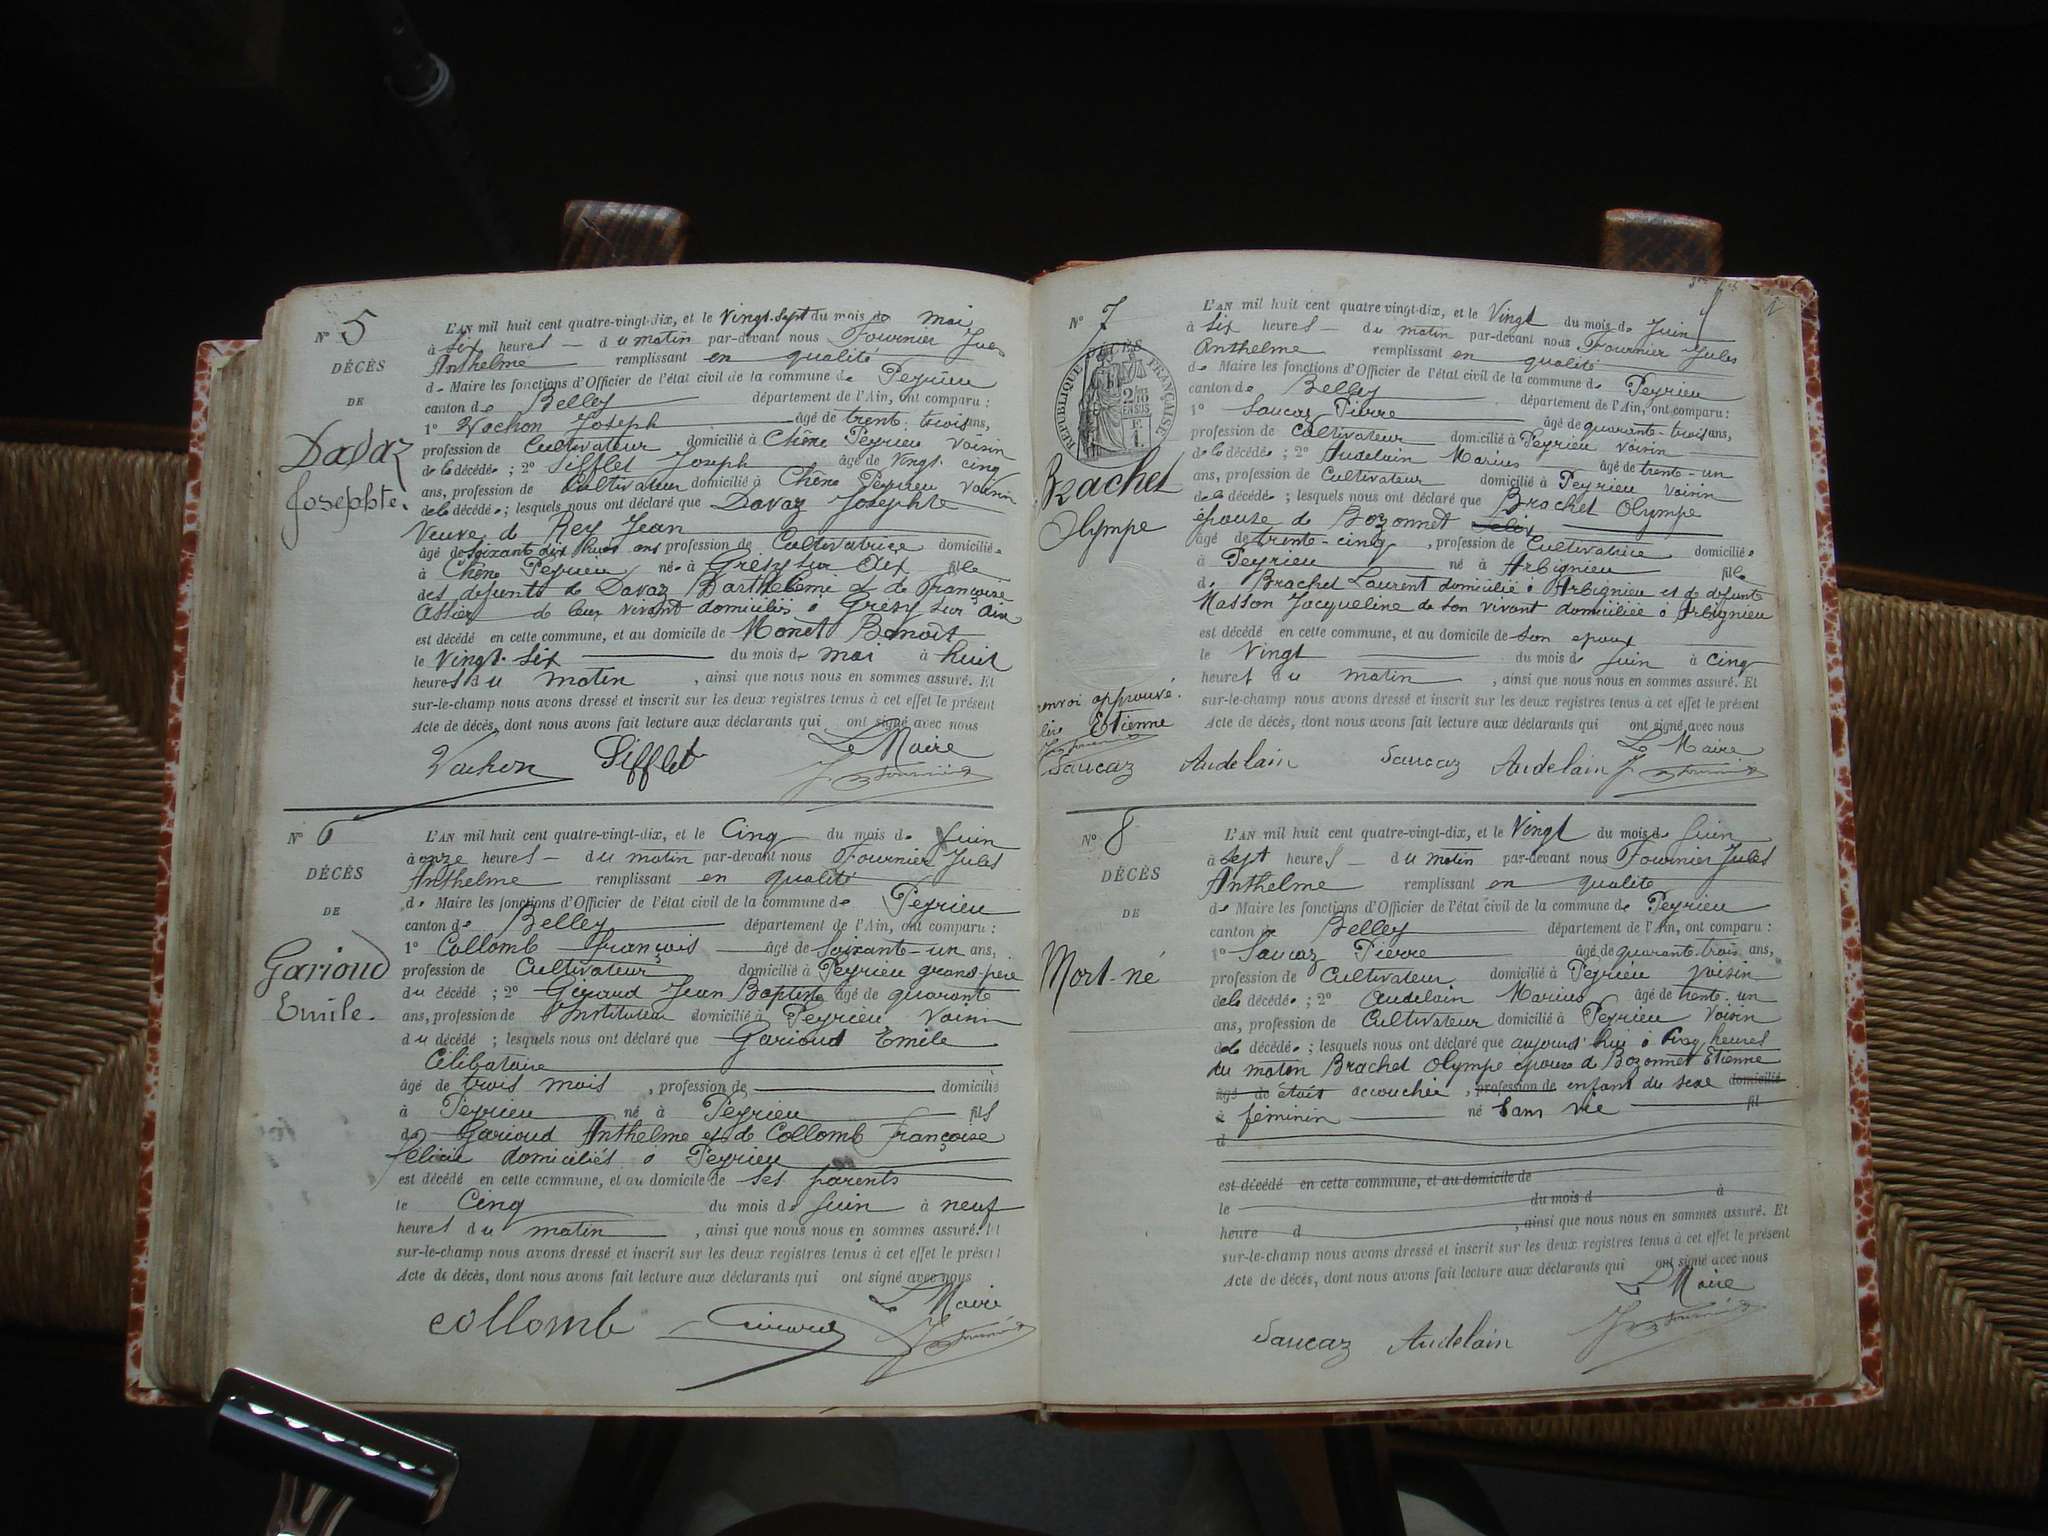 N° 5
DÉCÈS
DE
Davaz
Josephte.
L'AN mil huit cent quatre-vingt-dix, et le Vingt-sept du mois de mai
à six heures du matin par-devant nous Fournier Jules
Anthelme remplissant en qualité
de Maire les fonctions d'Officier de l'état civil de la commune de Peyrieu
canton de Belley département de l'Ain, ont comparu :
1° Vachon Joseph âgé de trente-trois ans,
profession de Cultivateur domicilié à Chêne Peyrieu Voisin
de la décédée ; 2° Sifflet Joseph âgé de Vingt-cinq
ans, profession de Cultivateur domicilié à Chêne Peyrieu Voisin
de la décédée ; lesquels nous ont déclaré que Davaz Josephte
Veuve de Rey Jean
âgé de soixante dix huit ans profession de Cultivatrice domiciliée
à Chêne Peyrieu née à Grésy sur Aix fille
des defunts de Davaz Barthélemi & de Françoise
de leur vivant domiciliés à Grésy sur Aix
est décédé en cette commune, et au domicile de Monet Benoît
le Vingt-six du mois de mai à huit
heures du matin , ainsi que nous nous en sommes assuré. Et
sur-le-champ nous avons dressé et inscrit sur les deux registres tenus à cet effet le présent
Acte de décès, dont nous avons fait lecture aux déclarants qui ont signé avec nous
Vachon Sifflet Le Maire
J Fournier
N° 6
DÉCÈS
DE
Garioud
Emile.
L'AN mil huit cent quatre-vingt-dix, et le Cinq du mois de Juin
à onze heures du matin par-devant nous Fournier Jules
Anthelme remplissant en qualité
de Maire les fonctions d'Officier de l'état civil de la commune de Peyrieu
canton de Belley département de l'Ain, ont comparu :
1° Collomb François âgé de Soixante-un ans,
profession de Cultivateur domicilié à Peyrieu grand-père
du décédé ; 2° Giraud Jean Baptiste âgé de quarante
ans, profession de Instituteur domicilié à Peyrieu Voisin
du décédé ; lesquels nous ont déclaré que Garioud Emile
Célibataire
âgé de trois mois , profession de domicilié
à Peyrieu né à Peyrieu fils
de Garioud Anthelme et de Collomb Françoise
félicie domiciliés à Peyrieu
est décédé en cette commune, et au domicile de ses parents
le Cinq du mois de Juin à neuf
heures du matin , ainsi que nous nous en sommes assuré. Et
sur-le-champ nous avons dressé et inscrit sur les deux registres tenus à cet effet le présent
Acte de décès, dont nous avons fait lecture aux déclarants qui ont signé avec nous
Le Maire
Collomb Giraud J Fournier
N° 7
DÉCÈS
RÉPUBLIQUE FRANÇAISE
2/10 EN SUS
F.
1.
Brachet
Olympe
L'AN mil huit cent quatre-vingt-dix, et le Vingt du mois de Juin
à six heures du matin par-devant nous Fournier Jules
Anthelme remplissant en qualité
de Maire les fonctions d'Officier de l'état civil de la commune de Peyrieu
canton de Belley département de l'Ain, ont comparu :
1° Saucaz Pierre âgé de quarante-trois ans,
profession de Cultivateur domicilié à Peyrieu voisin
de la décédée ; 2° Audelain Marius âgé de trente-un
ans, profession de Cultivateur domicilié à Peyrieu Voisin
de la décédée ; lesquels nous ont déclaré que Brachet Olympe
épouse de Bozonnet
âgé de trente-cinq , profession de Cultivatrice domiciliée
à Peyrieu né à Arbignieu fille
de Brachet Laurent domicilié à Arbignieu et de defunte
Masson Jacqueline de son vivant domiciliée à Arbignieu
est décédé en cette commune, et au domicile de son epoux
le Vingt du mois de Juin à cinq
heures du matin , ainsi que nous nous en sommes assuré. Et
sur-le-champ nous avons dressé et inscrit sur les deux registres tenus à cet effet le présent
Acte de décès, dont nous avons fait lecture aux déclarants qui ont signé avec nous
renvoi approuvé.
Etienne
Le Maire
Saucaz Audelain Saucaz Audelain J Fournier
N° 8
DÉCÈS
DE
Mort-né
L'AN mil huit cent quatre-vingt-dix, et le Vingt du mois de Juin
à sept heures du matin par-devant nous Fournier Jules
Anthelme remplissant en qualité
de Maire les fonctions d'Officier de l'état civil de la commune de Peyrieu
canton de Belley département de l'Ain, ont comparu :
1° Saucaz Pierre âgé de quarante-trois ans,
profession de Cultivateur domicilié à Peyrieu voisin
de la décédée ; 2° Audelain Marius âgé de trente-un
ans, profession de Cultivateur domicilié à Peyrieu Voisin
de la décédée ; lesquels nous ont déclaré que aujourd'hui à cinq heures
du matin Brachet Olympe épouse de Bozonnet Etienne
âgé de était accouchée , profession de enfant du sexe domicilié
à féminin né sans vie fil
d
est décédé en cette commune, et au domicile de
le du mois d à
heure d , ainsi que nous nous en sommes assuré. Et
sur-le-champ nous avons dressé et inscrit sur les deux registres tenus à cet effet le présent
Acte de décès, dont nous avons fait lecture aux déclarants qui ont signé avec nous
Le Maire
Saucaz Audelain J Fournier